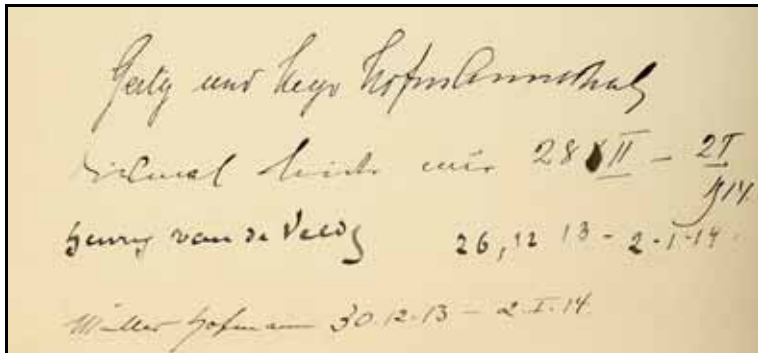 Gerty und Hugo Hofmannsthal
diesmal beide nur 28 XII – 2 I 1914
Henry van de Velde 26,12 13 – 2-I-14
Müller Hofmann 30.12.13 – 2.I.14.